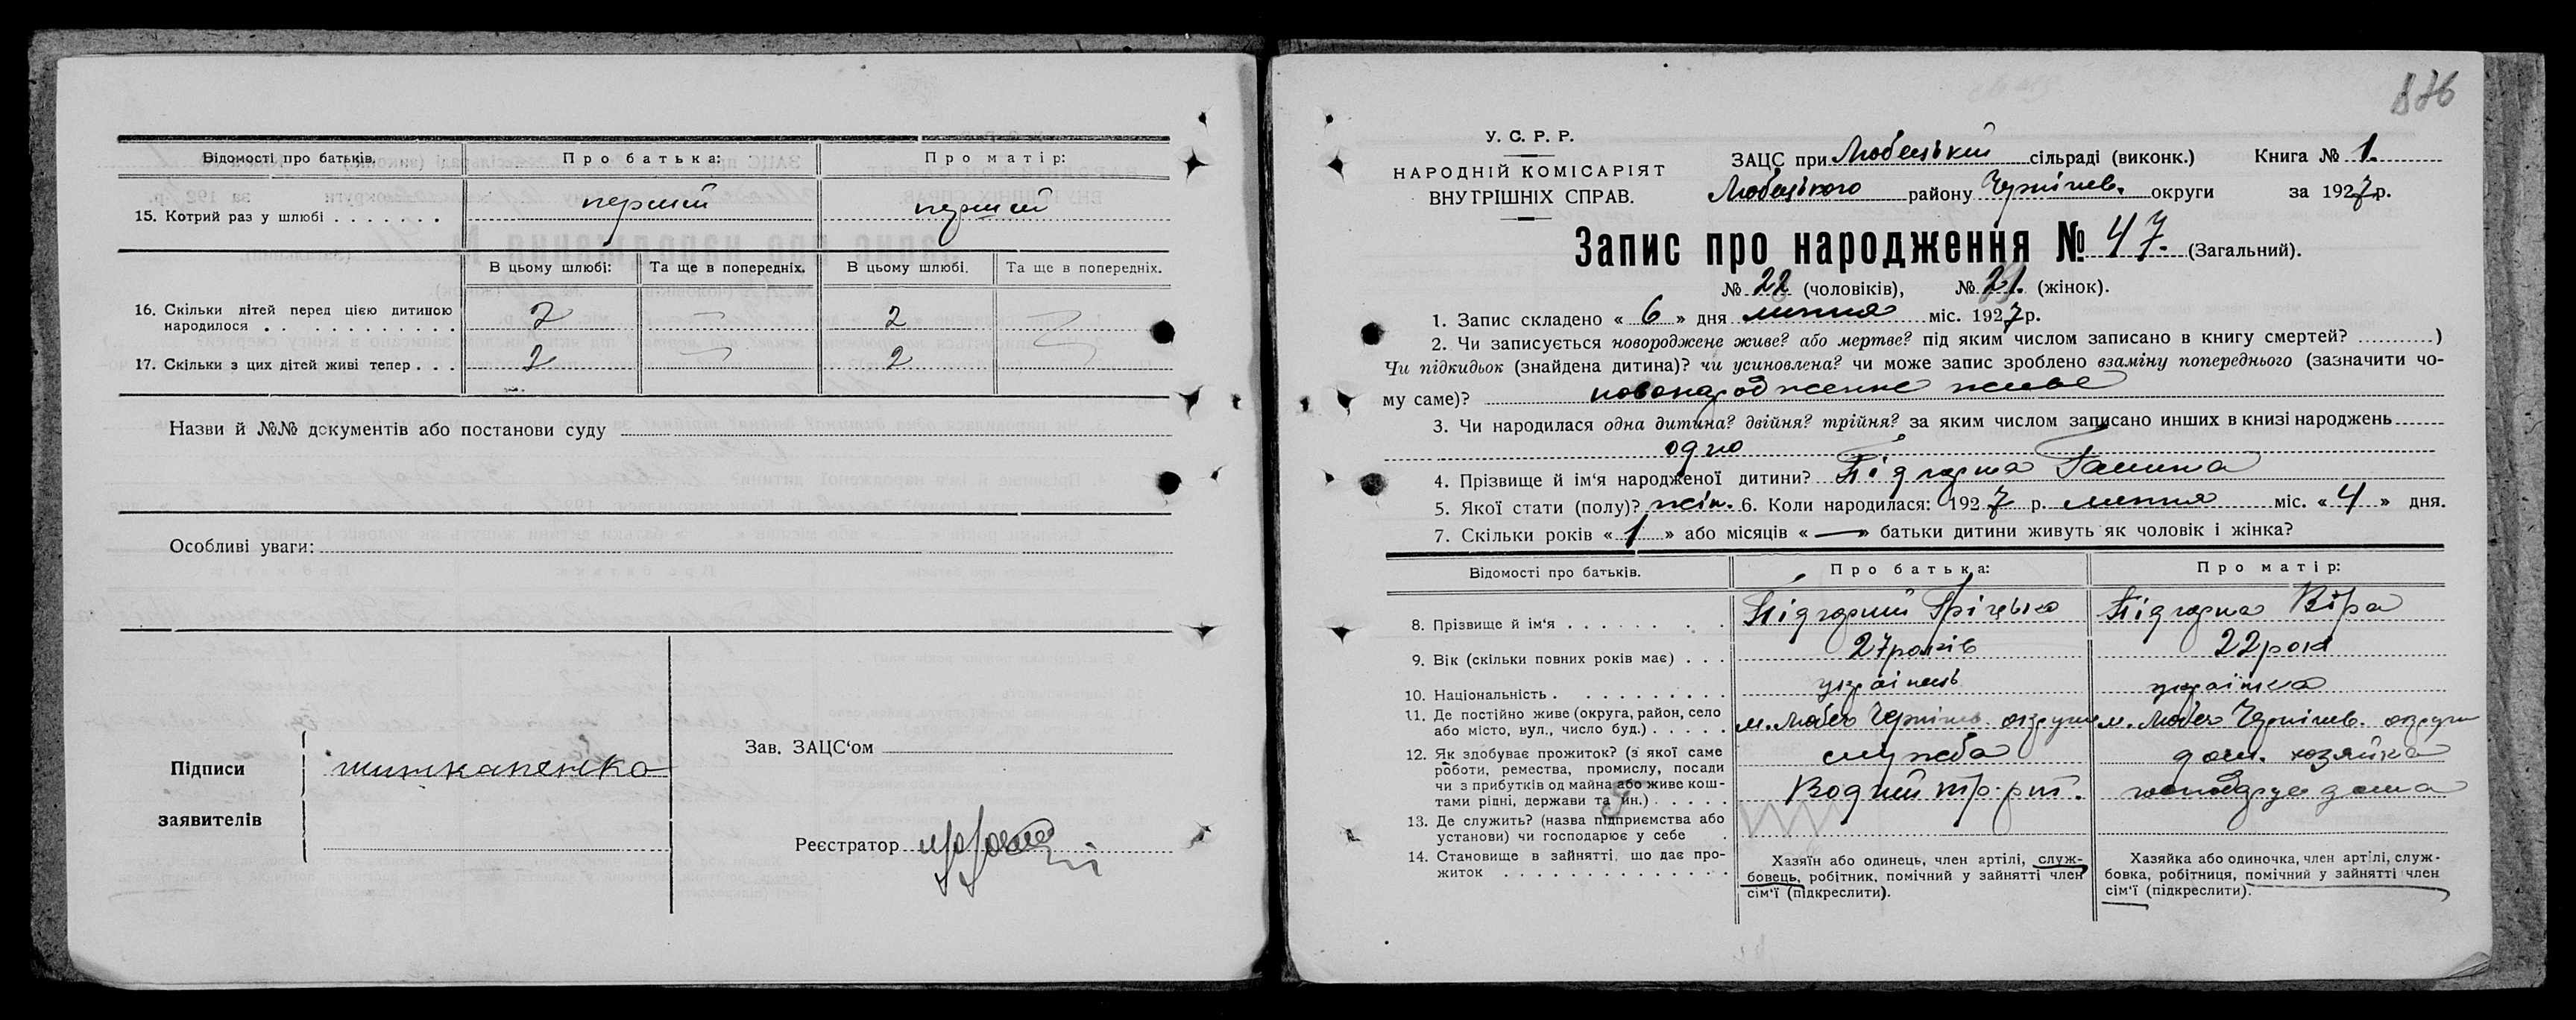 Відомості про батьків. Про батька: Про матір:
15. Котрий раз у шлюбі . . . . . . . перший перший
В цьому шлюбі: Та ще в попередніх. В цьому шлюбі. Та ще в попередніх.
16. Скільки дітей перед цією дитиною
народилося . . . . . . . . . . . 2 — 2 —
17. Скільки з цих дітей живі тепер . . . 2 — 2 —
Назви й №№ документів або постанови суду
Особливі уваги:
Підписи
заявителів
Зав. ЗАЦС'ом
Реєстратор
876
У. С. Р. Р.
НАРОДНІЙ КОМІСАРІЯТ
ВНУТРІШНІХ СПРАВ.
ЗАЦС при Любецькій сільраді (виконк.) Книга № 1.
Любецького району Чернігів. округи за 1927 р.
Запис про народження № 47. (Загальний).
№ 22 (чоловіків), № (жінок).
1. Запис складено « 6 » дня липня міс. 1927 р.
2. Чи записується новороджене живе? або мертве? під яким числом записано в книгу смертей? ...........)
Чи підкидьок (знайдена дитина)? чи усиновлена? чи може запис зроблено взаміну попереднього (зазначити чо-
му саме)? новонародженне живе
3. Чи народилася одна дитина? двійня? трійня? за яким числом записано инших в книзі народжень
одно
4. Прізвище й ім'я народженої дитини? Підгорна Галина
5. Якої стати (полу)? жін. 6. Коли народилася: 1927 р. липня міс. « 4 » дня.
7. Скільки років « 1 » або місяців « — » батьки дитини живуть як чоловік і жінка?
Відомості про батьків. Про батька: Про матір:
8. Прізвище й ім'я . . . . . . . . Підгорний Гріцько Підгорна Віра
9. Вік (скільки повних років має) . . . 27 років 22 рокі
10. Національність . . . . . . . . . . українець українка
11. Де постійно живе (округа, район, село
або місто, вул., число буд.) . . . . . м. Любеч Чернігів. округи м. Любеч Чернігів. округи
12. Як здобуває прожиток? (з якої саме
роботи, ремества, промислу, посади
чи з прибутків од майна або живе кош-
тами рідні, держави та ин.) . . . . . служба дом. хозяйка
13. Де служить? (назва підприємства або
установи) чи господарює у себе . Водний тр-рт. господарує дома
14. Становище в зайнятті, що дає про-
житок . . . . . . . . . . . . . . .
Хазяїн або одинець, член артілі, служ-
бовець, робітник, помічний у зайнятті член
сім'ї (підкреслити).
Хазяйка або одиночка, член артілі, служ-
бовка, робітниця, помічний у зайнятті член
сім'ї (підкреслити).